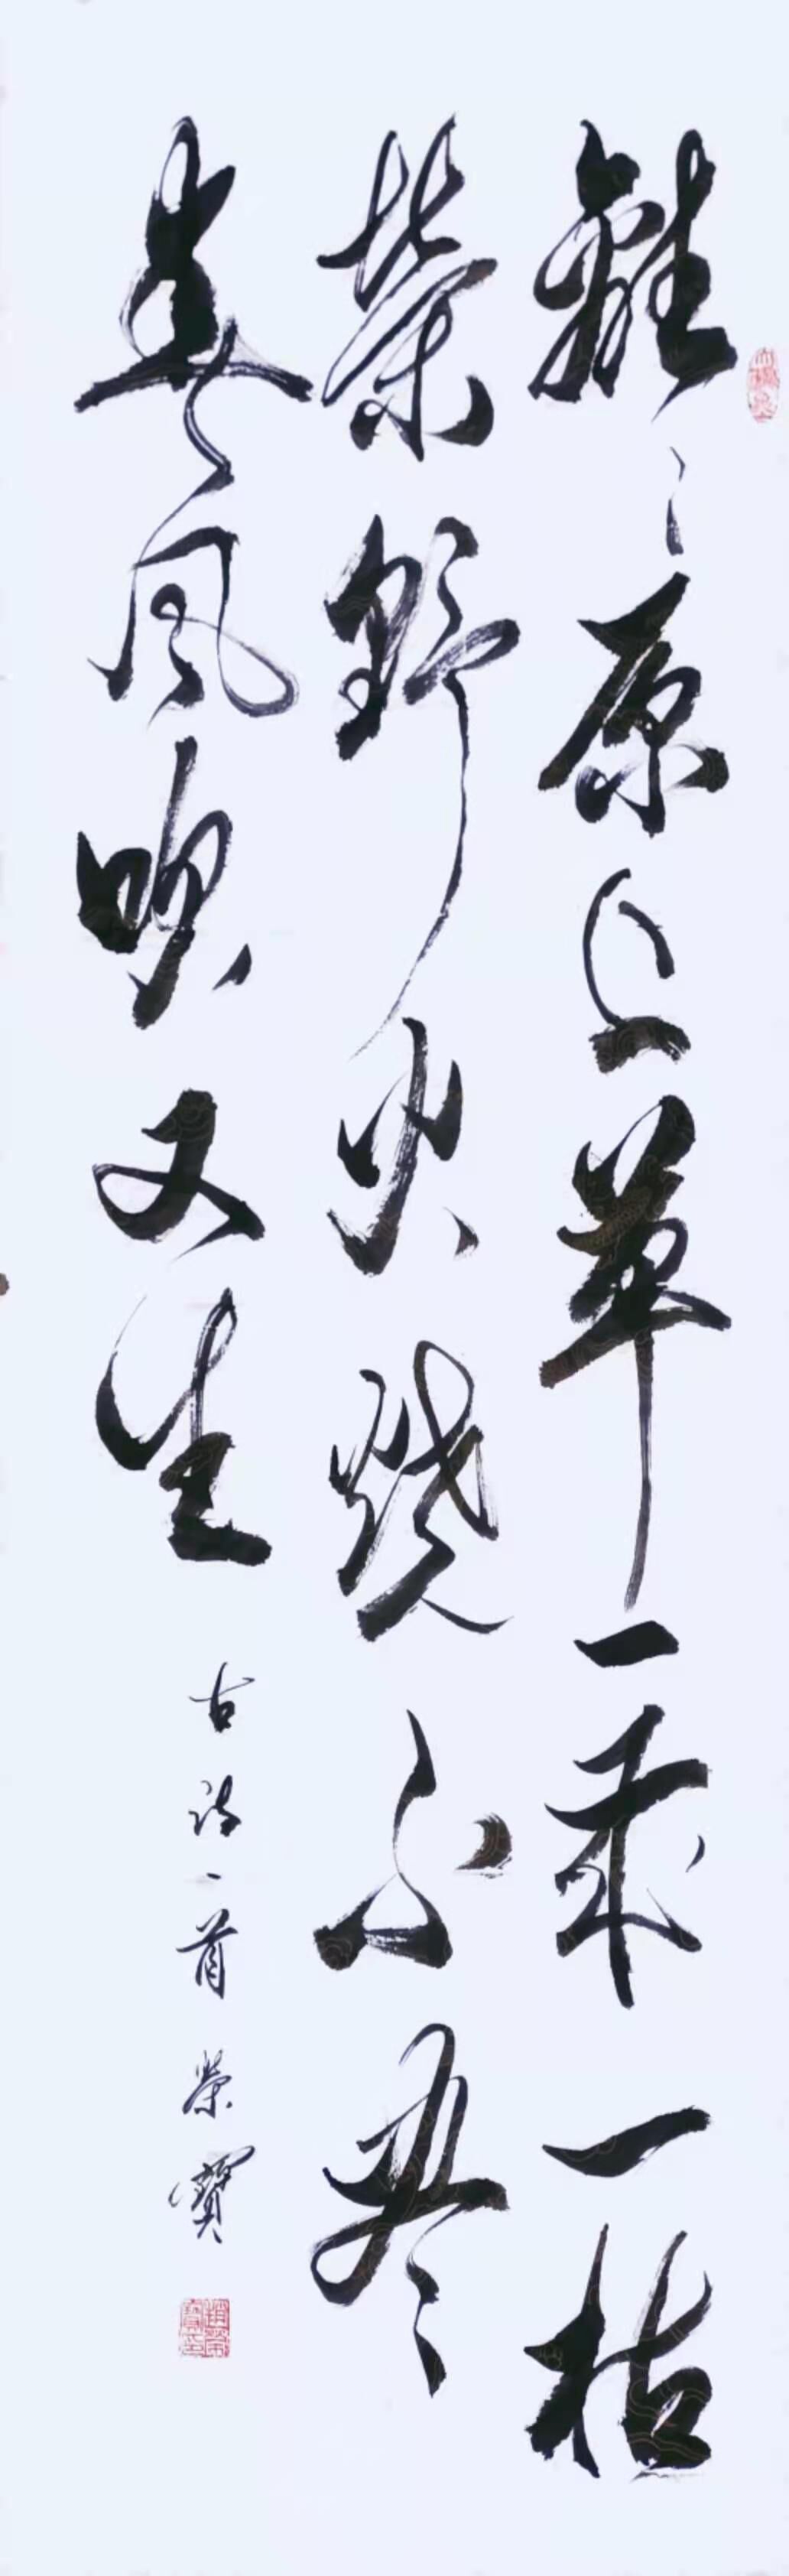 離〻原上草一歲一枯
榮野火燒不盡
春風吹又生
古詩一首 榮寶